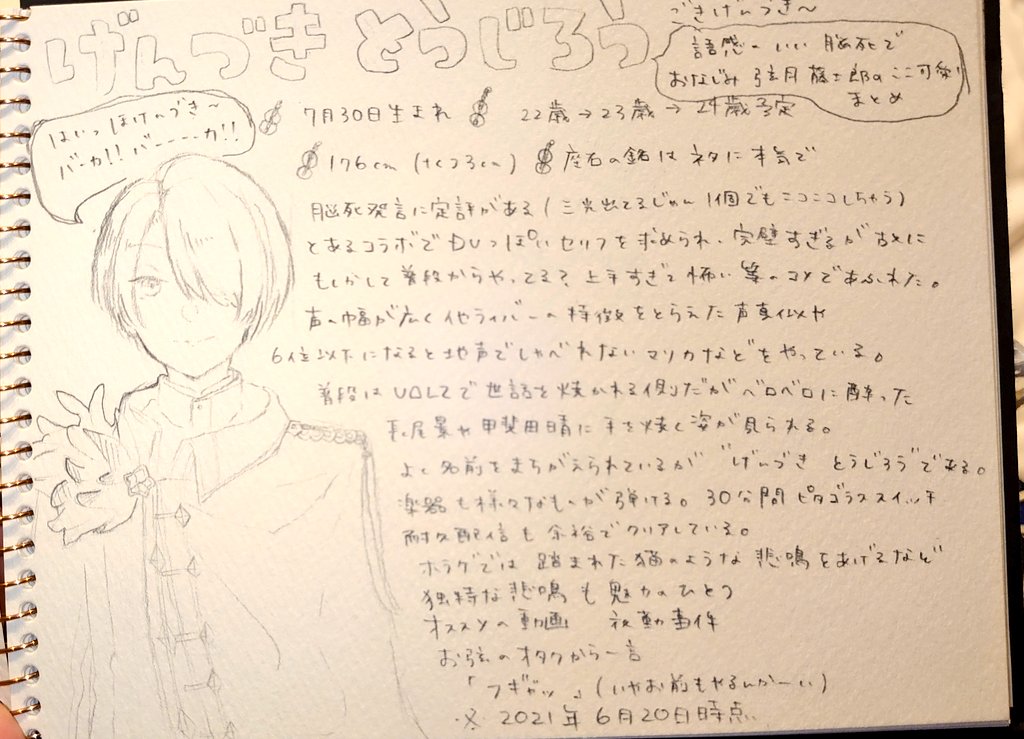 げんづき とうじろう
ごきげんづき〜
語感のいい脳死で
おなじみ 弦月 藤士郎のここ可愛い
まとめ
はいっ ほけんづき〜
バーカ!! バーーーカ!!
7月30日生まれ 22歳→23歳→24歳予定
176cm (たつ3cm) 座右の銘は ネタに本気で
脳死発言に定評がある (三光出てるじゃん 1個でもニコニコしちゃう)
とあるコラボでDVっぽいセリフを求められ、完璧すぎるが故に
もしかして普段からやってる? 上手すぎて怖い 等のコメであふれた。
声の幅が広く他ライバーの特徴をとらえた声真似や
6位以下になると地声でしゃべれないマリカなどをやっている。
普段はVΔLZで世話を焼かれる側だがベロベロに酔った
長尾景や甲斐田晴に手を焼く姿が見られる。
よく名前をまちがえられているが "げんづき とうじろう"である。
楽器も様々なものが弾ける。30分間ピタゴラスイッチ
耐久配信も余裕でクリアしている。
ホラゲでは踏まれた猫のような悲鳴をあげるなど
独特な悲鳴も魅力のひとつ
オススメの動画 初動事件
お弦のオタクから一言
「フギャッ」(いやお前もやるんかーい)
※ 2021年6月20日時点